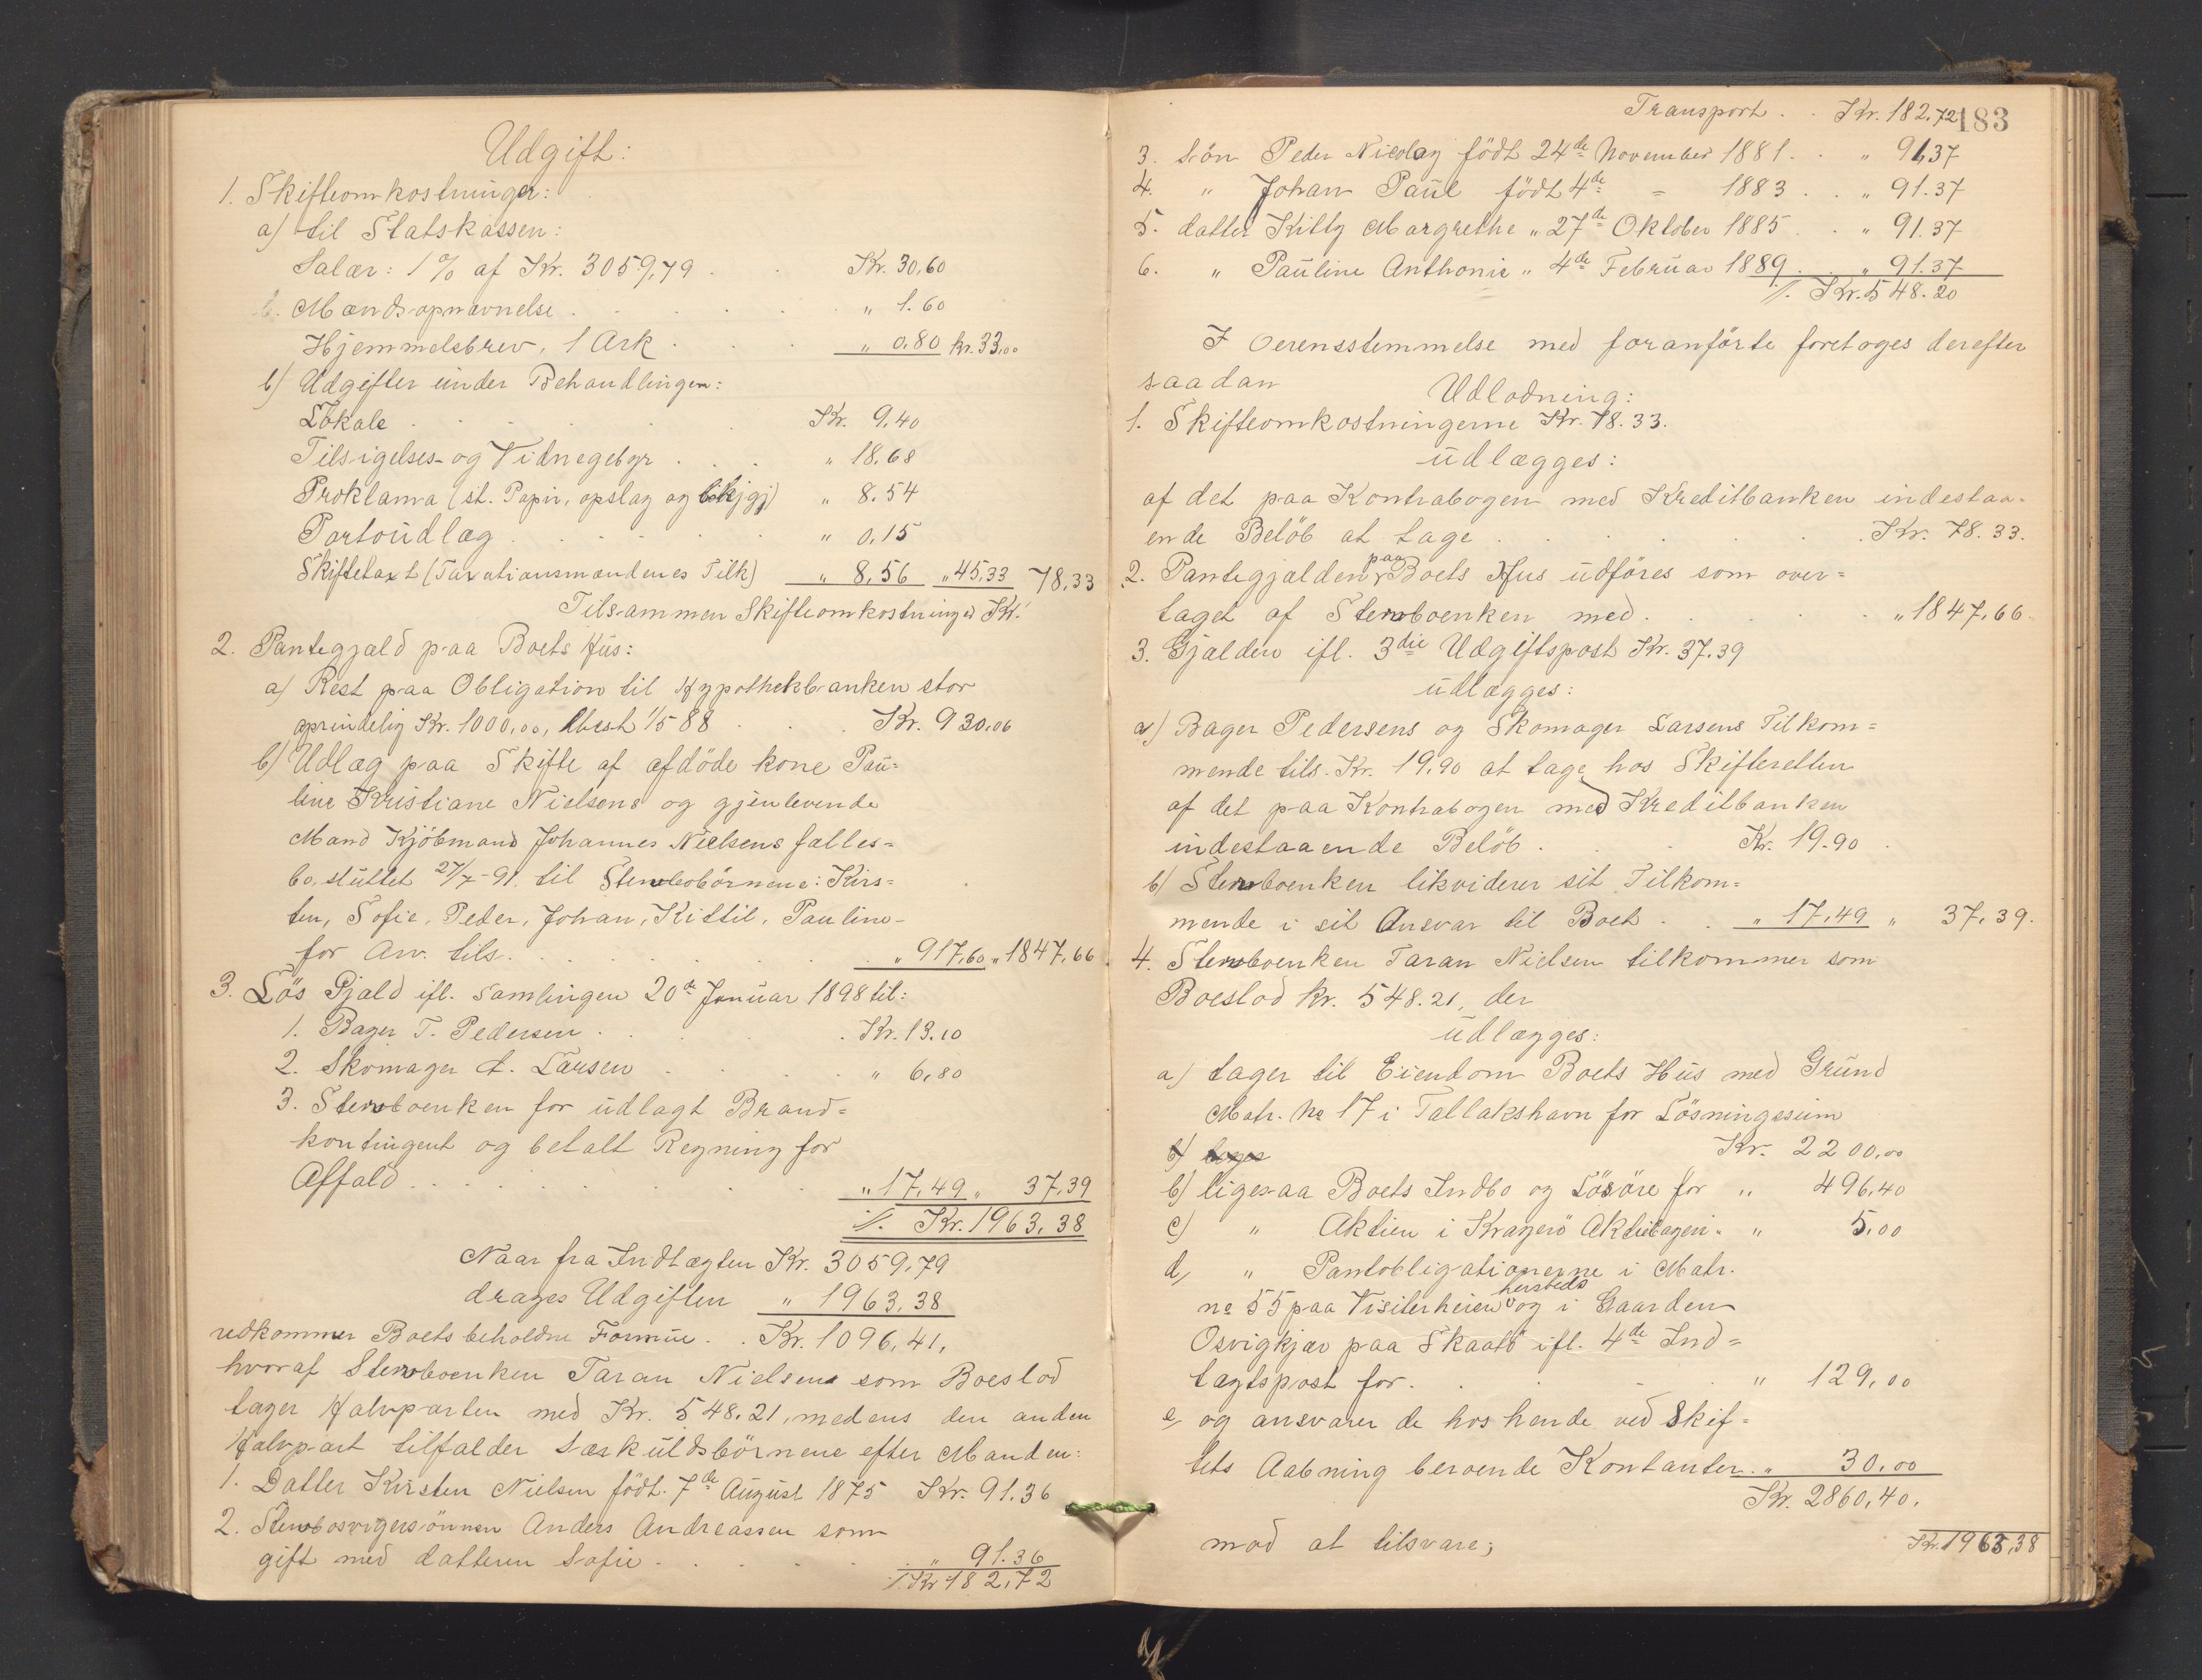 Udgift:
1. Skifteomkostninger:
a) til Statskassen:
Salær: 1% af Kr. 3059,79 . . Kr. 30,60
Mændsopnævnelse . . . . . " 1.60
Hjemmelsbrev, 1 Ark . . . " 0.80 kr. 33,00
b) Udgifter under Behandlingen:
Lokale . . . . . Kr. 9,40
Tilsigelses- og Vidnegebyr . . . " 18,68
Proklama (st. Papir, opslag og bkjgj) " 8.54
Portoudlæg . . . . . . " 0,15
Skiftetaxt (Taxationsmændenes Tilk) " 8,56 " 45,33 78,33
Tilsammen Skifteomkostninger Kr.
2. Pantegjæld paa Boets Hus:
a) Rest paa Obligation til Hypothekbanken stor
oprindelig Kr. 1000,00, thest 1/5 88 . . Kr. 930,06
b) Udlæg paa Skifte af afdöde kone Pau=
line Kristiane Nielsens og gjenlevende
Mand Kjöbmand Johannes Nielsens fælles=
bo, sluttet 27/7-91. til Stervbobörnene: Kirs=
ten, Sofie, Peder, Johan, Kittil, Pauline-
for Arv. tils. . . . . . . . " 917,60 " 1847,66
3. Lös Gjæld ifl. Samlingen 20de Januar 1898 til:
1. Bager T. Pedersen . . . . . Kr. 13.10
2. Skomager A. Larsen . . . . " 6,80
3. Stervboenken for udlagt Brand=
kontingent og betalt Regning for
Affald . . . . . . . " 17,49 " 37,39
/. Kr. 1963,38
Naar fra Indtægten Kr. 3059,79
drages Udgiften " 1963,38
udkommer Boets beholdne Formue . . Kr. 1096,41,
hvoraf Stervboenken Taran Nielsen som Boeslod
tager Halvparten med Kr. 548.21, medens den anden
Halvpart tilfalder Særkuldsbörnene efter Manden:
1. Datter Kirsten Nielsen födt. 7de August 1875 Kr. 91.36
2. Stervbosvigersönnen Anders Andreassen som
gift med datteren Sofie . . . . . " 91.36
/. Kr 182,72
183
Transport . . Kr. 182,72
3. Sön Peder Nicolay födt 24de November 1881 . . " 91,37
4. " Johan Paul födt 4de = 1883 . . " 91.37
5. datter Kitty Margrethe " 27de Oktober 1885 . . " 91.37
6. " Pauline Anthonie " 4de Februar 1889 . . " 91.37
/. Kr. 548.20
I Overensstemmelse med foranförte foretages derefter
saadan
Udlodning:
1. Skifteomkostningerne Kr. 78.33.
udlægges:
af det paa Kontrabogen med Kreditbanken indestaa-
ende Belöb at tage . . . . . . Kr. 78.33.
2. Pantegjælden paa Boets Hus udföres som over=
taget af Stervboenken med . . . . " 1847,66.
3. Gjælden ifl. 3die Udgiftspost Kr. 37.39
udlægges:
a) Bager Pedersens og Skomager Larsens Tilkom=
mende tils. Kr. 19,90 at tage hos Skifteretten
af det paa Kontrabogen med Kreditbanken
indestaaende Belöb . . . Kr. 19.90 .
b) Stervboenken likviderer sit Tilkom=
mende i sit Ansvar til Boet . . " 17,49 " 37,39.
4. Stervboenken Taran Nielsen tilkommer som
Boeslod kr. 548.21, der
udlægges:
a) tager til Eiendom Boets Hus med Grund
Matr. No 17 i Tallakshavn for Lösningssum
Kr. 2200,00
b) ligesaa Boets Indbo og Lösöre for " 496,40
c) " Aktien i Kragerö Aktiebageri " " 5,00
d, " Pantobligationerne i Matr.
no 55 paa Visiterheien hersteds og i Gaarden
Osvigkjær paa Skaatö ifl. 4de Ind=
tægtspost for . . . . . " 129,00
e, og ansvarer de hos hende ved Skif=
tets Aabning beroende Kontanter . " 30,00
Kr. 2860,40,
mod at tilsvare; Kr. 1963,38